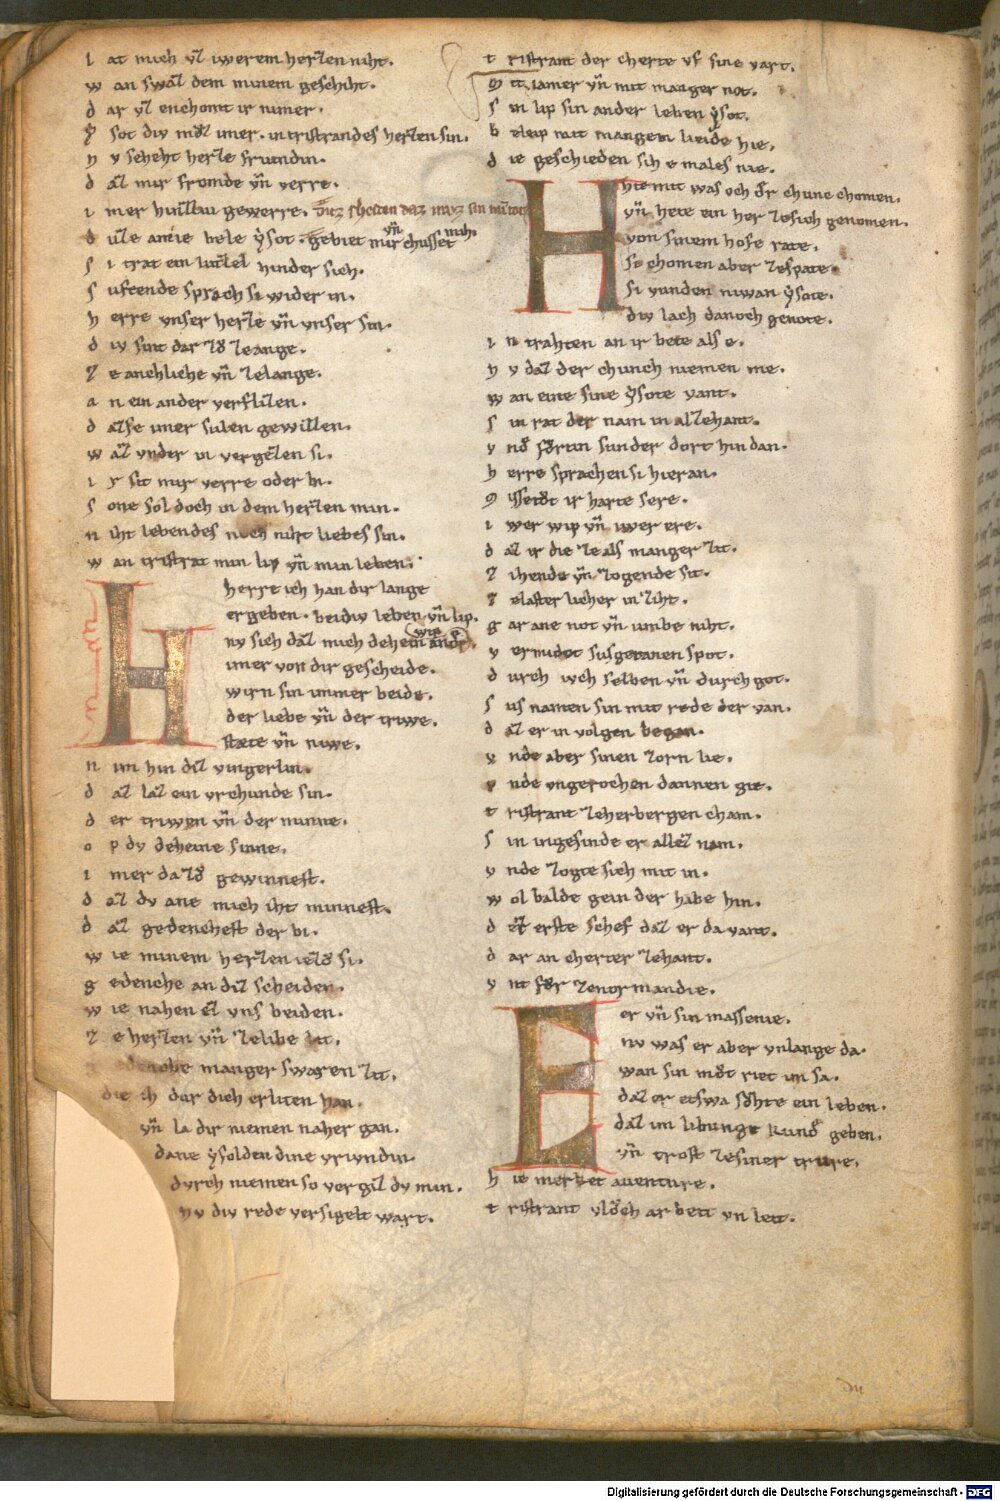 l at mich vz iwerem herzen niht.
w an swaz dem minem geschiht.
d ar vz enchomt ir nimer.
ẏ sot div mvͦz imer. in tristrandes herzen sin.
n v seheht herze friundin.
d az mir fromde vn̄ verre.
i mer hinzziu gewerre. Ditz scheiden daz mvz sin
d vͦze amie bele ẏsot. gebiet mir vn̄ chusset mih.
s i trat ein lutzel hinder sich.
s uftende sprach si wider in.
h erre vnser herze vn̄ vnser sin.
d iv sint dar zvͦ ze ange.
z e anchliche vn̄ ze lange.
a n ein ander verflizen.
d az se imer sulen gewizzen.
w az vnder in vergezzen si.
i r sit mir verre oder bi.
s one sol doch in dem herzen min.
n iht lebendes noch niht liebes sin.
w an tristrat min lip vn̄ min leben.
Herre ich han dir lange
ergeben. beidiv leben vn̄ lip.
nv sich daz mich dehein ander wip
imer von dir gescheide.
wirn sin immer beide.
der liebe vn̄ der triwe.
stæte vn̄ niwe.
n im hin diz vingerlin.
d az laz ein vrchunde sin.
d er triwen vn̄ der minne.
o p dv deheine sinne.
i mer da zvͦ gewinnest.
d az dv ane mich iht minnest.
d az gedenchest der bi.
w ie minem herzen iezvͦ si.
g edenche an diz scheiden.
w ie nahen ez vns beiden.
z e herzen vn̄ ze libe lit.
manger swaren zit.
die ih dur dich erliten han.
vn̄ la dir niemen naher gan.
dane ẏsolden dine vriundin.
dvrch niemen so vergiz dv min.
nv div rede versigelt wart.
t ristrant der cherte vf sine vart.
m it iamer vn̄ mit manger not.
s in lip sin ander leben ẏsot.
b eleip mit mangem leide hie.
d ie geschieden sih e males nie.
Hie mit was och der chunc chomen.
vn̄ hete ein her ze sich genomen.
von sinem hofe rate.
si chomen aber ze spate.
si vunden niwan ẏsote.
div lach danoch genote.
i n trahten an ir bete als e.
n v daz der chunch niemen me.
w an eine sine ẏsote vant.
s in rat der nam in al zehant.
v nd fvͦrtin sunder dort hin dan.
h erre sprachen si hieran.
m issetvͦt ir harte sere.
i wer wip vn̄ iwer ere.
d az ir die ze als manger zit.
z ihende vn̄ zogende sit.
z e laster licher inziht.
g ar ane not vn̄ umbe niht.
v ermidet susgetanen spot.
d urch iuch selben vn̄ durch got.
s us namen sin mit rede der van.
d az er in volgen began.
v nde aber sinen zorn lie.
v nde vngerochen dannen gie.
t ristrant ze herbergen cham.
s in ingesinde er allez nam.
v nde zogte sich mit in.
w ol balde gein der habe hin.
d ez erste schef daz er da vant.
d ar an cherter zehant.
v nt fvͦr ze normandie.
Er vn̄ sin massenie.
nv was er aber vnlange da.
wan sin mvͦt riet im sa.
daz er etswa svͦhte ein leben.
daz im libunge kunde geben.
vn̄ trost ze siner trure.
h ie merket auenture.
t ristrant vlvͦch ar beit vn leit.
Digitalisierung gefördert durch die Deutsche Forschungsgemeinschaft - DFG